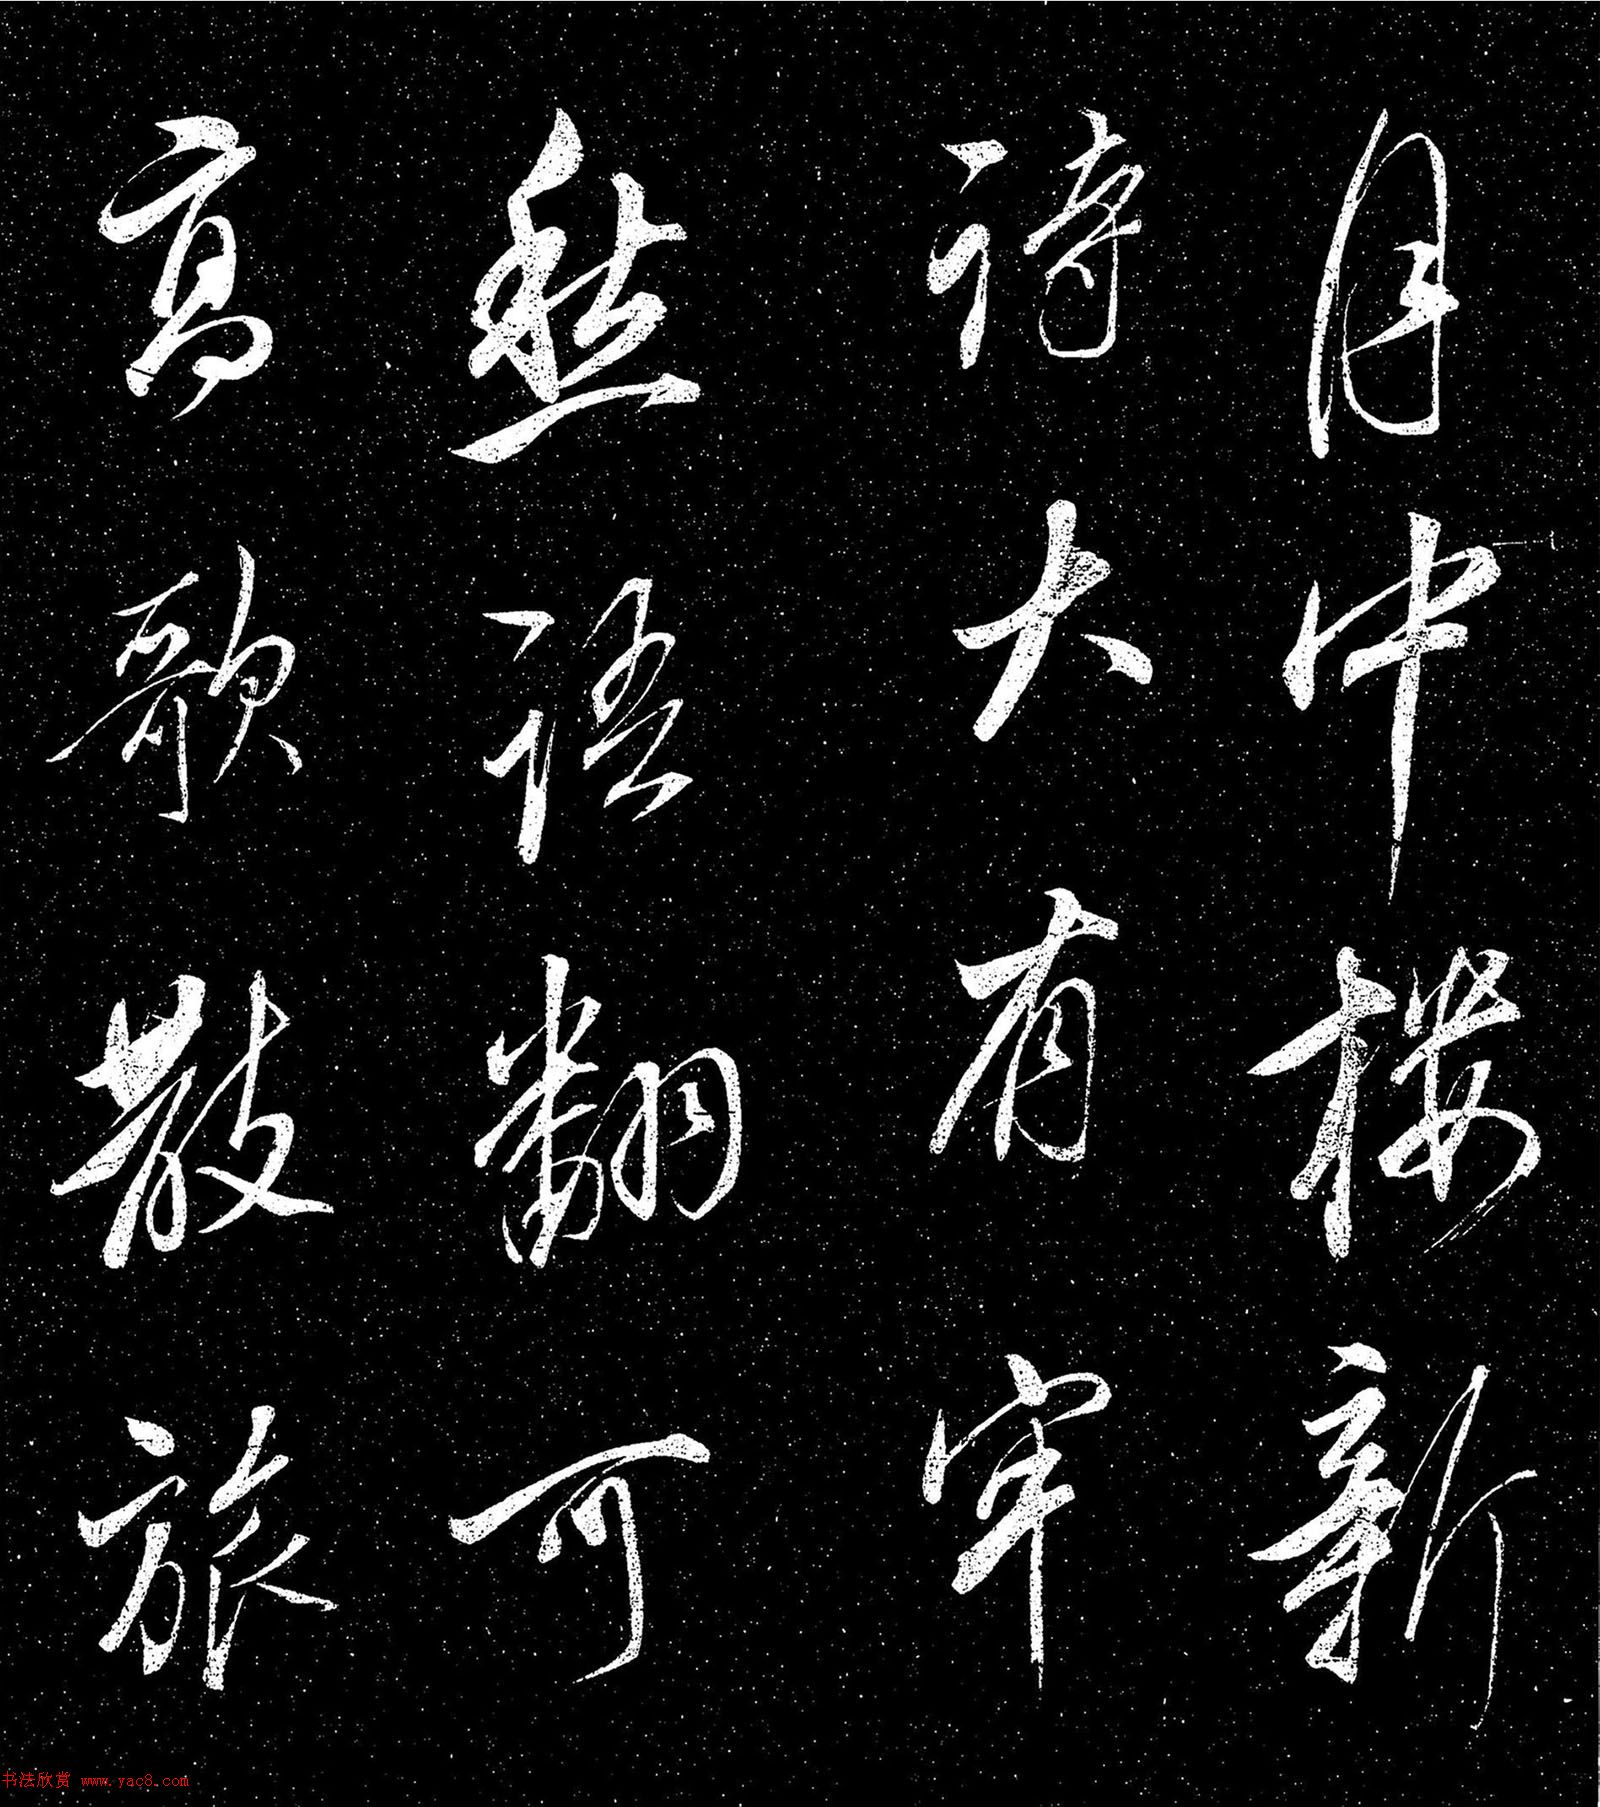 月中樓新
詩大有牢
愁語翻可
高歌散旅
书法欣赏 www.yac8.com